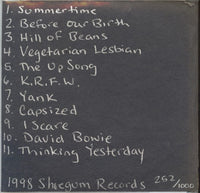 1. Summertime
2. Before Our Birth
3. Hill of Beans
4. Vegetarian Lesbian
5. The Up Song
6. K.R.F.W.
7. Yank
8. Capsized
9. I Scare
10. David Bowie
11. Thinking Yesterday
1998 Shuegum Records 252/1000